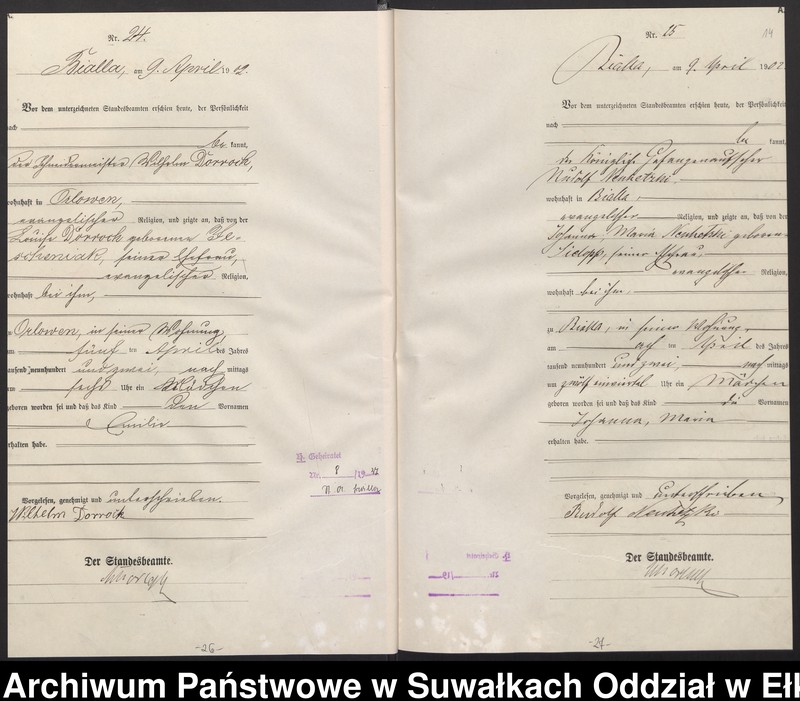 Nr. 24.
Bialla, am 9. April 1902.
Vor dem unterzeichneten Standesbeamten erschien heute, der Persönlichkeit
nach
be kannt,
der Schneidermeister Wilhelm Dorrock,
wohnhaft in Orlowen,
evangelischer Religion, und zeigte an, daß von der
Louise Dorrock geborene
seiner Ehefrau,
evangelischer Religion,
wohnhaft bei ihm,
zu Orlowen, in seiner Wohnung
am fünf ten April des Jahres
tausend neunhundert und zwei, nach mittags
um sechs Uhr ein Mädchen
geboren worden sei und daß das Kind den Vornamen
Emilie
erhalten habe.
Vorgelesen, genehmigt und unterschrieben.
Wilhelm Dorrock
Der Standesbeamte.
-26-
Nr. 8 /19
Nr. 15
14
Bialla, am 9. April 1902
Vor dem unterzeichneten Standesbeamten erschien heute, der Persönlichkeit
nach
be kannt,
der Königliche Gefangenaufseher
Rudolf
wohnhaft in Bialla,
evangelischer Religion, und zeigte an, daß von der
Johanna, Maria geborene
seiner Ehefrau,
evangelischer Religion,
wohnhaft bei ihm,
zu Bialla, in seiner Wohnung,
am ach ten April des Jahres
tausend neunhundert und zwei, nach mittags
um zwölf einviertel Uhr ein Mädchen
geboren worden sei und daß das Kind die Vornamen
Johanna, Maria
erhalten habe.
Vorgelesen, genehmigt und unterschrieben
Rudolf
Der Standesbeamte.
-27-
Archiwum Państwowe w Suwałkach Oddział w Ełk